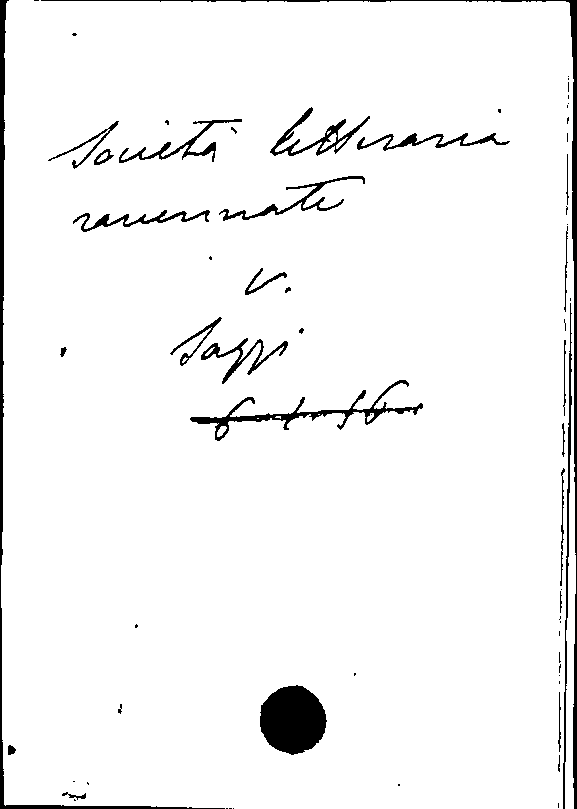 Società letteraria
ravennate
v.
Saggi